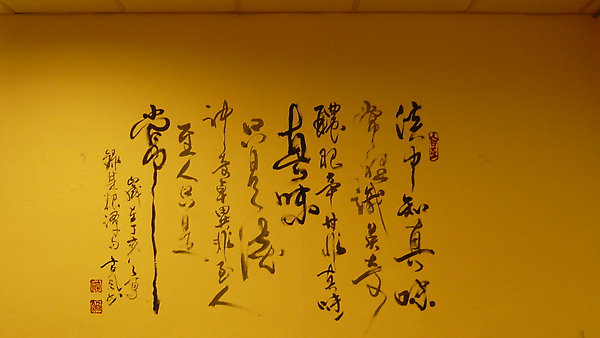 淡中知真味
常裡識英奇
醲肥辛甘非真味
真味
只是淡
神奇卓異非至人
至人只是
常
歲在丁亥之夏
錄菜根譚句